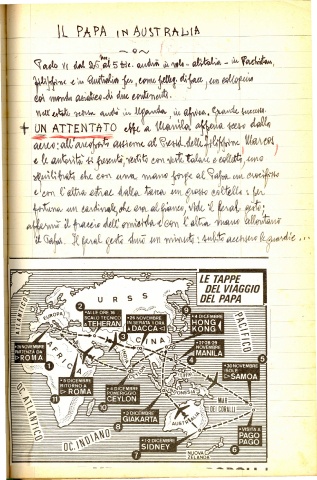 IL PAPA IN AUSTRALIA
Paolo VI dal 26 al 5 dic. andrà in volo - alitalia - in Pachistan,
Filippine e in Australia per, come pelleg. di pace, un colloquio
col mondo asiatico di due continenti.
Nell'estate scorsa andò in Uganda, in Africa. Grande successo.
+ UN ATTENTATO ebbe a Manila appena sceso dallo
aereo: all'aeroporto assieme al Presid. delle Filippine Marcos,
e le autorità si presentò, vestito con veste talare e colletto, uno
squilibrato che con una mano porge al Papa un crocifisso
e con l'altra estrae dalla tasca un grosso coltello: per
fortuna un cardinale, che era al fianco, vide il feral gesto;
afferrò il braccio dell'omicida e con l'altra mano allontanò
il Papa. Il feral gesto durò un minuto: subito accorsero le guardie...
LE TAPPE
DEL VIAGGIO
DEL PAPA
EUROPA
U R S S
2
ALLE ORE 16
SCALO TECNICO
A TEHERAN
3
26 NOVEMBRE
IN SERATA ORE
A DACCA
9
4 DICEMBRE
HONG
KONG
4
27-28-29
NOVEMBRE
MANILA
PACIFICO
CINA
26 NOVEMBRE
PARTENZA DA
ROMA
1
AFRICA
11
5 DICEMBRE
RITORNO A
ROMA
10
4 DICEMBRE
POMERIGGIO
CEYLON
8
3 DICEMBRE
GIAKARTA
5
30 NOVEMBRE
ISOLE
SAMOA
OC. ATLANTICO
OC. INDIANO
INDONESIA
MAR
DEI CORALLI
AUSTRALIA
6
VISITA A
PAGO
PAGO
7
1-2 DICEMBRE
SIDNEY
NUOVA
ZELANDA